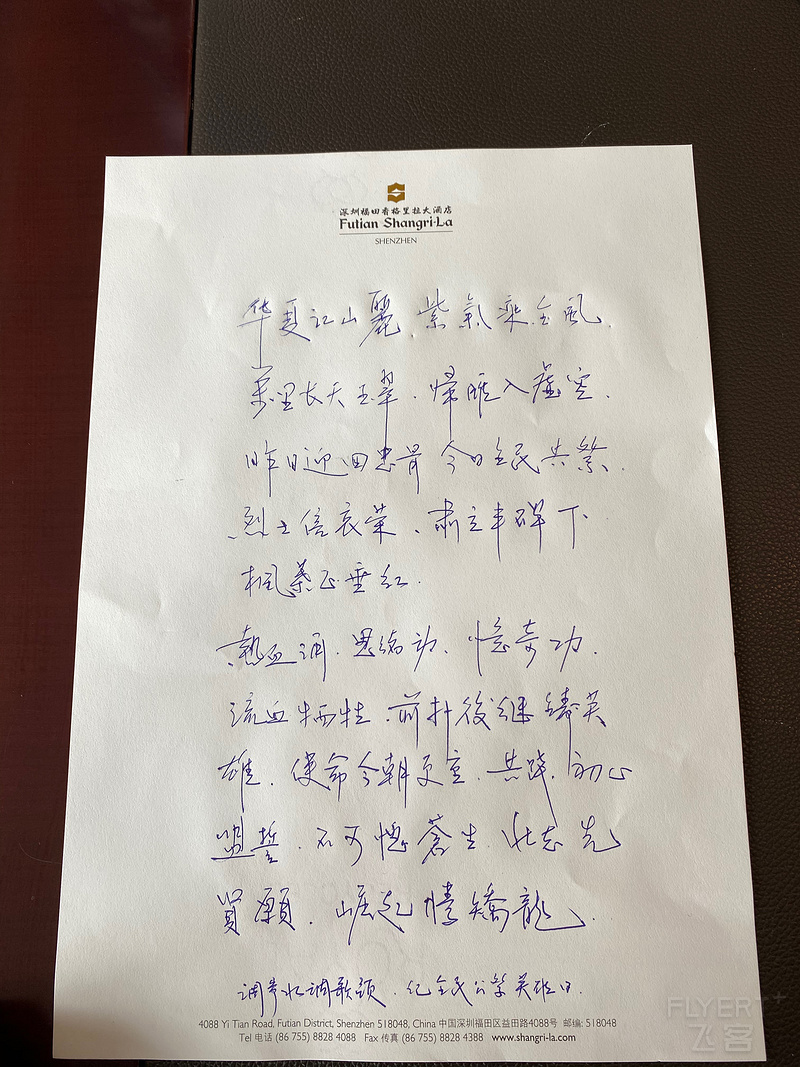 深圳福田香格里拉大酒店
Futian Shangri-La
SHENZHEN
华夏江山麗,紫氣乘金風.
萬里长天玉翠.帰雁入虚空.
昨日迎回忠骨 今日全民共祭.
烈士倍哀荣、肃立丰碑下
枫葉正垂红.
熱血洒.思绪动、憶奇功.
流血牺牲.前扑後继鑄英
雄.使命今朝更重.共踐.初心
盟誓.不可忘蒼生.壮志先
賢願.崛起.矯龍.
调寄水调歌頭.纪全民公祭英雄日.
4088 Yi Tian Road, Futian District, Shenzhen 518048, China 中国深圳福田区益田路4088号 邮编: 518048
Tel 电话 (86 755) 8828 4088 Fax 传真 (86 755) 8828 4388 www.shangri-la.com
FLYERT
飞客